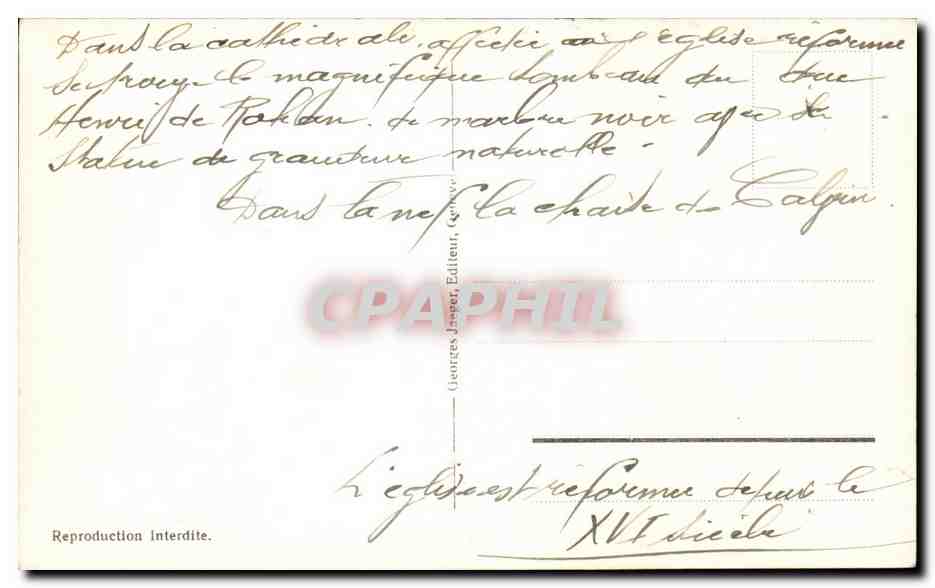 Dans la cathédrale affectée à l'église réformée
se trouve le magnifique tombeau du Duc
Henri de Rohan de marbre noir avec la
statue de grandeur naturelle -
Dans la nef, la chaise de Calvin.
Georges Jaeger, Editeur, Genève
CPAPHIL
L'église est réformée depuis le
XVI siècle
Reproduction Interdite.